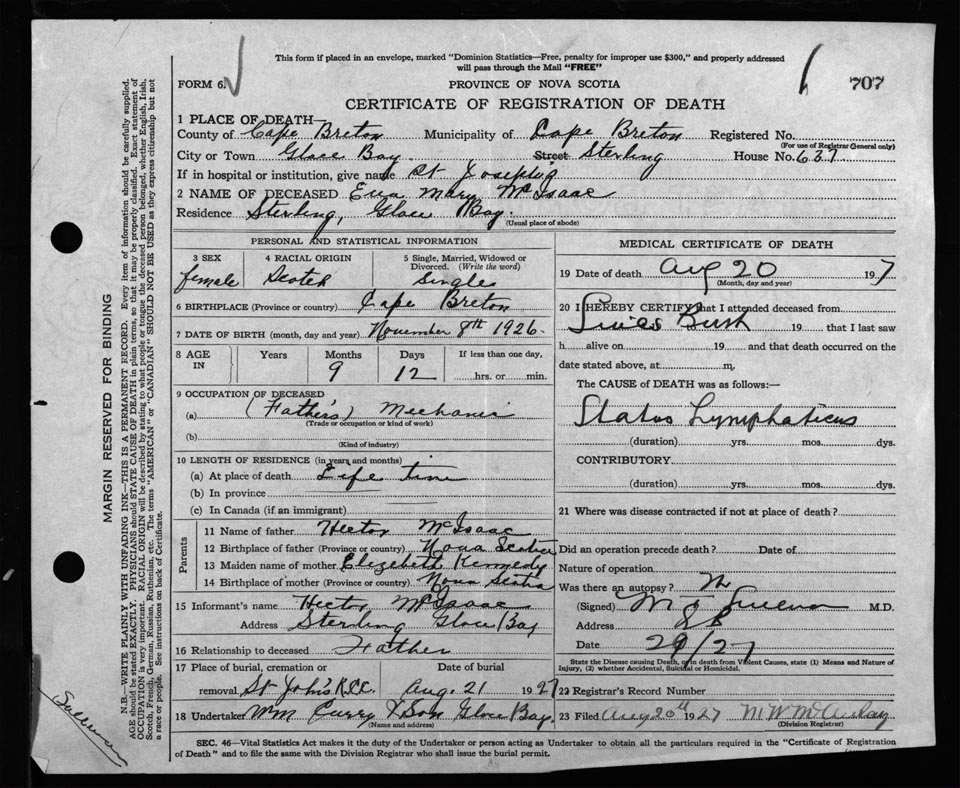 This form if placed in an envelope, marked "Dominion Statistics—Free, penalty for improper use $300," and properly addressed
will pass through the Mail "FREE"
FORM 6.
PROVINCE OF NOVA SCOTIA
707
CERTIFICATE OF REGISTRATION OF DEATH
1 PLACE OF DEATH—
County of Cape Breton Municipality of Cape Breton Registered No.
(For use of Registrar General only)
City or Town Glace Bay Street Sterling House No. 637
If in hospital or institution, give name St Joseph's
2 NAME OF DECEASED Eva Mary McIsaac
Residence Sterling, Glace Bay.
(Usual place of abode)
PERSONAL AND STATISTICAL INFORMATION
3 SEX female
4 RACIAL ORIGIN Scotch
5 Single, Married, Widowed or Divorced. (Write the word) Single
6 BIRTHPLACE (Province or country) Cape Breton
7 DATE OF BIRTH (month, day and year) November 8th 1926.
8 AGE IN Years Months 9 Days 12 If less than one day, hrs. or min.
9 OCCUPATION OF DECEASED
(a) (Father's) Mechanic
(Trade or occupation or kind of work)
(b)
(Kind of industry)
10 LENGTH OF RESIDENCE (in years and months)
(a) At place of death Life time
(b) In province
(c) In Canada (if an immigrant)
Parents
11 Name of father Hector McIsaac
12 Birthplace of father (Province or country) Nova Scotia
13 Maiden name of mother Elizabeth Kennedy
14 Birthplace of mother (Province or country) Nova Scotia
15 Informant's name Hector McIsaac
Address Sterling Glace Bay
16 Relationship to deceased Father
17 Place of burial, cremation or removal St John's R.C.C. Date of burial Aug. 21 1927
18 Undertaker Wm Curry & Son Glace Bay.
(Name and address)
MEDICAL CERTIFICATE OF DEATH
19 Date of death Aug 20 19 7
(Month, day and year)
20 I HEREBY CERTIFY that I attended deceased from
19 that I last saw
h alive on 19 and that death occurred on the
date stated above, at m.
The CAUSE of DEATH was as follows:—
Status Lymphaticus
(duration) yrs. mos. dys.
CONTRIBUTORY
(duration) yrs. mos. dys.
21 Where was disease contracted if not at place of death?
Did an operation precede death? Date of
Nature of operation
Was there an autopsy?
(Signed) M.D.
Address
Date 29/27
State the Disease causing Death, or in death from Violent Causes, state (1) Means and Nature of
Injury, (2) whether Accidental, Suicidal or Homicidal.
22 Registrar's Record Number
23 Filed Aug 20th 1927
(Division Registrar)
SEC. 46—Vital Statistics Act makes it the duty of the Undertaker or person acting as Undertaker to obtain all the particulars required in the "Certificate of Registration
of Death" and to file the same with the Division Registrar who shall issue the burial permit.
MARGIN RESERVED FOR BINDING
N.B.—WRITE PLAINLY WITH UNFADING INK—THIS IS A PERMANENT RECORD. Every item of information should be carefully supplied.
AGE should be stated EXACTLY. PHYSICIANS should STATE CAUSE OF DEATH in plain terms, so that it may be properly classified. Exact statement of
OCCUPATION is very important. RACIAL ORIGIN will be described by stating to what people or tongue the deceased person belonged, whether English, Irish,
Scotch, French, German, Russian, Ruthenian, etc. The terms "AMERICAN" or "CANADIAN" SHOULD NOT BE USED as they express citizenship but not
a race or people. See instructions on back of Certificate.